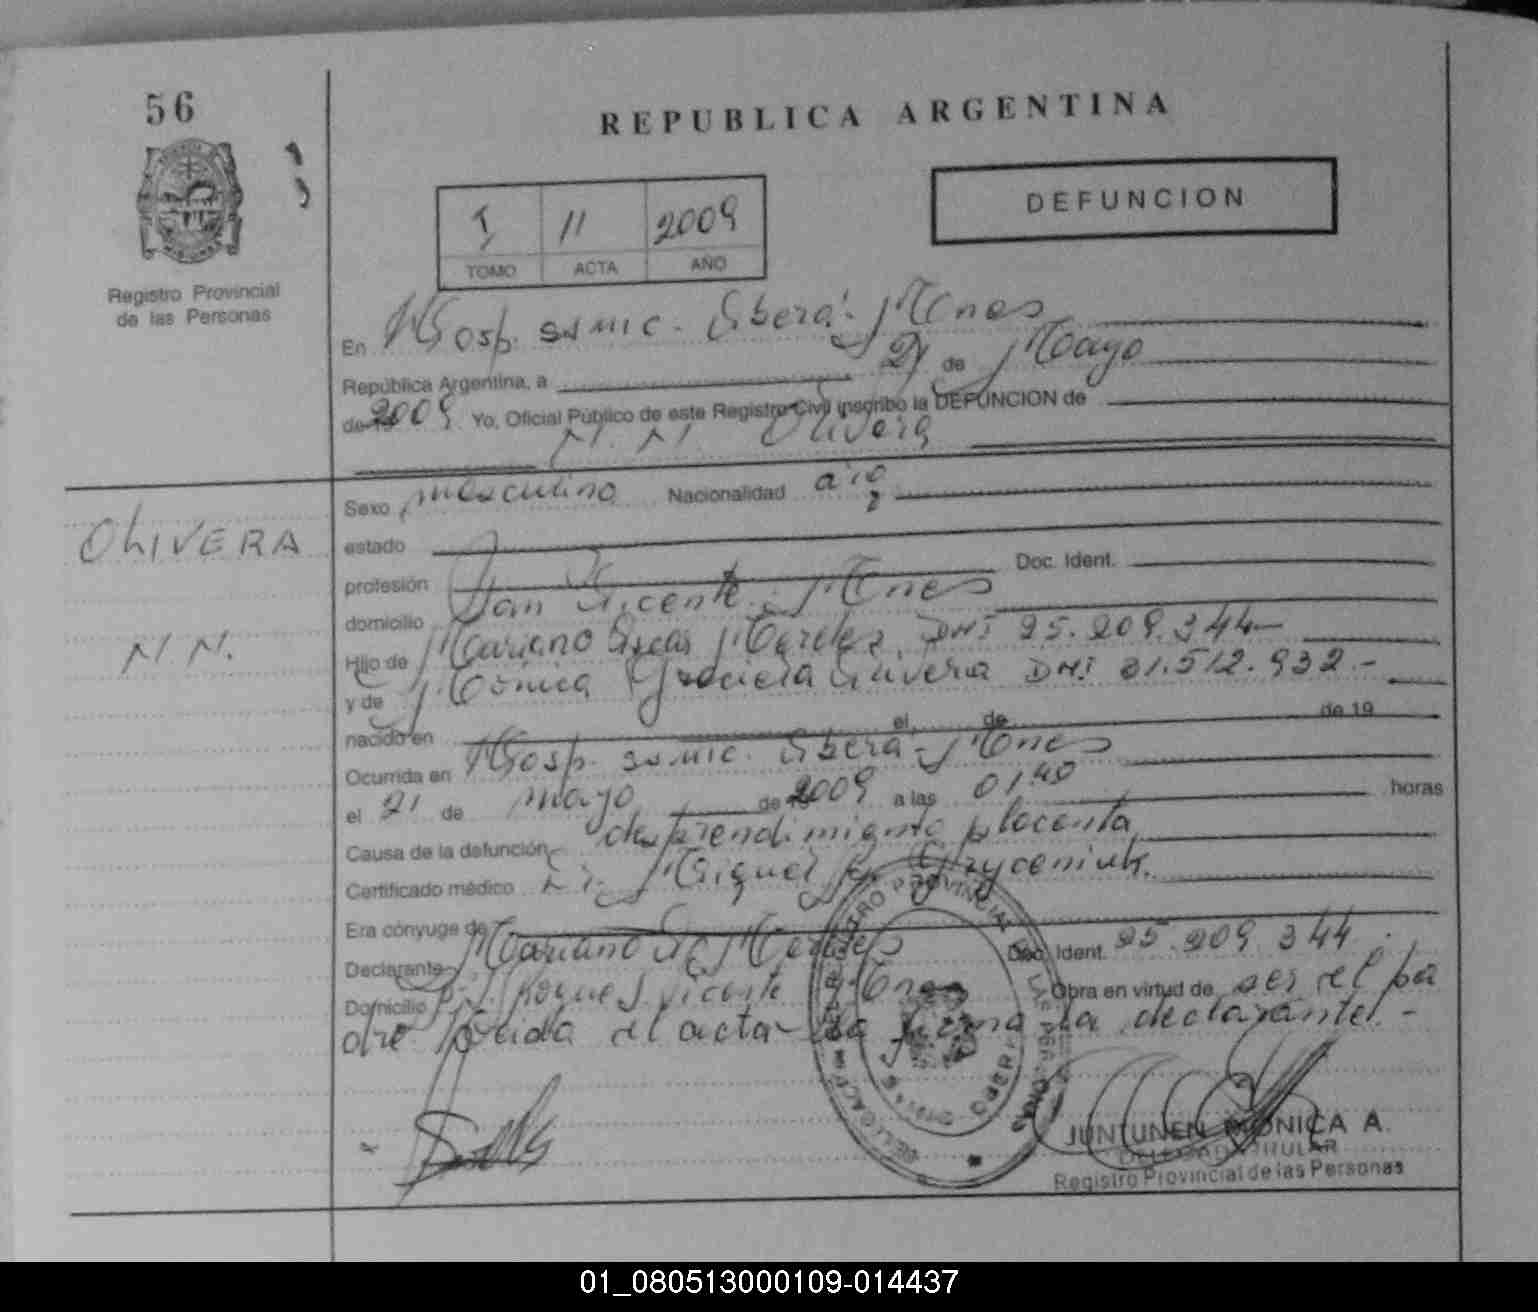 56
REPUBLICA ARGENTINA
DEFUNCION
I 11 2009
TOMO ACTA AÑO
Registro Provincial
de las Personas
En Hosp. samic. Eberá - Mnes
República Argentina, a 21 de Mayo
de 2009 Yo, Oficial Público de este Registro Civil inscribo la DEFUNCION de
N. N. Olivera
OLIVERA
N. N.
Sexo masculino Nacionalidad
estado
profesión Doc. Ident.
domicilio San Vicente - Mnes
Hijo de Mariano Oscar DNI 25.209.344-
y de Mónica Graciela Olivera DNI 31.512.932.-
nacido en el de de 19
Ocurrida en Hosp. samic. Eberá - Mnes
el 21 de mayo de 2009 a las 01:40 horas
Causa de la defunción desprendimiento placenta
Certificado médico Dr. Miguel
Era cónyuge de
Declarante Mariano Doc. Ident. 25.209.344.
Domicilio S. Vicente Mnes Obra en virtud de ser el pa
dre el acta la firma la declarante.-
JUNTUNEN MONICA A.
DELEGADA TITULAR
Registro Provincial de las Personas
01_080513000109-014437